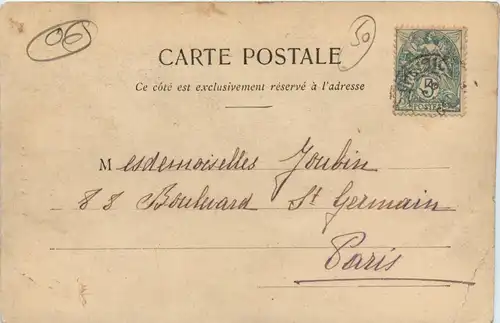 06
50
CARTE POSTALE
Ce côté est exclusivement réservé à l'adresse
5
POSTES
Mesdemoiselles Joubin
88 Boulevard St Germain
Paris